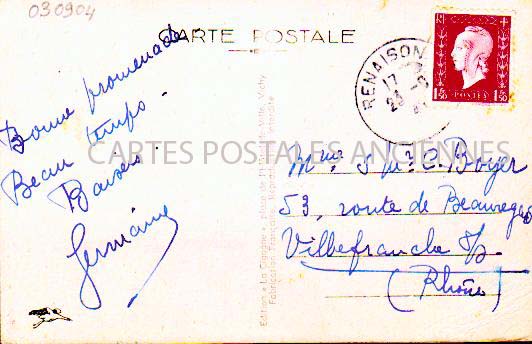 030904
CARTE POSTALE
RENAISON
17
23
RF
1F50 POSTES 1F50
Bonne promenade
Beau temps.
Baisers
Germaine
CARTES POSTALES ANCIENNES
Boyer
53, route de Beauregard
Villefranche s/s.
(Rhône)
Edition « La Cigogne », place de l'Hôtel de Ville, Vichy
Fabrication Française. Reproduction interdite